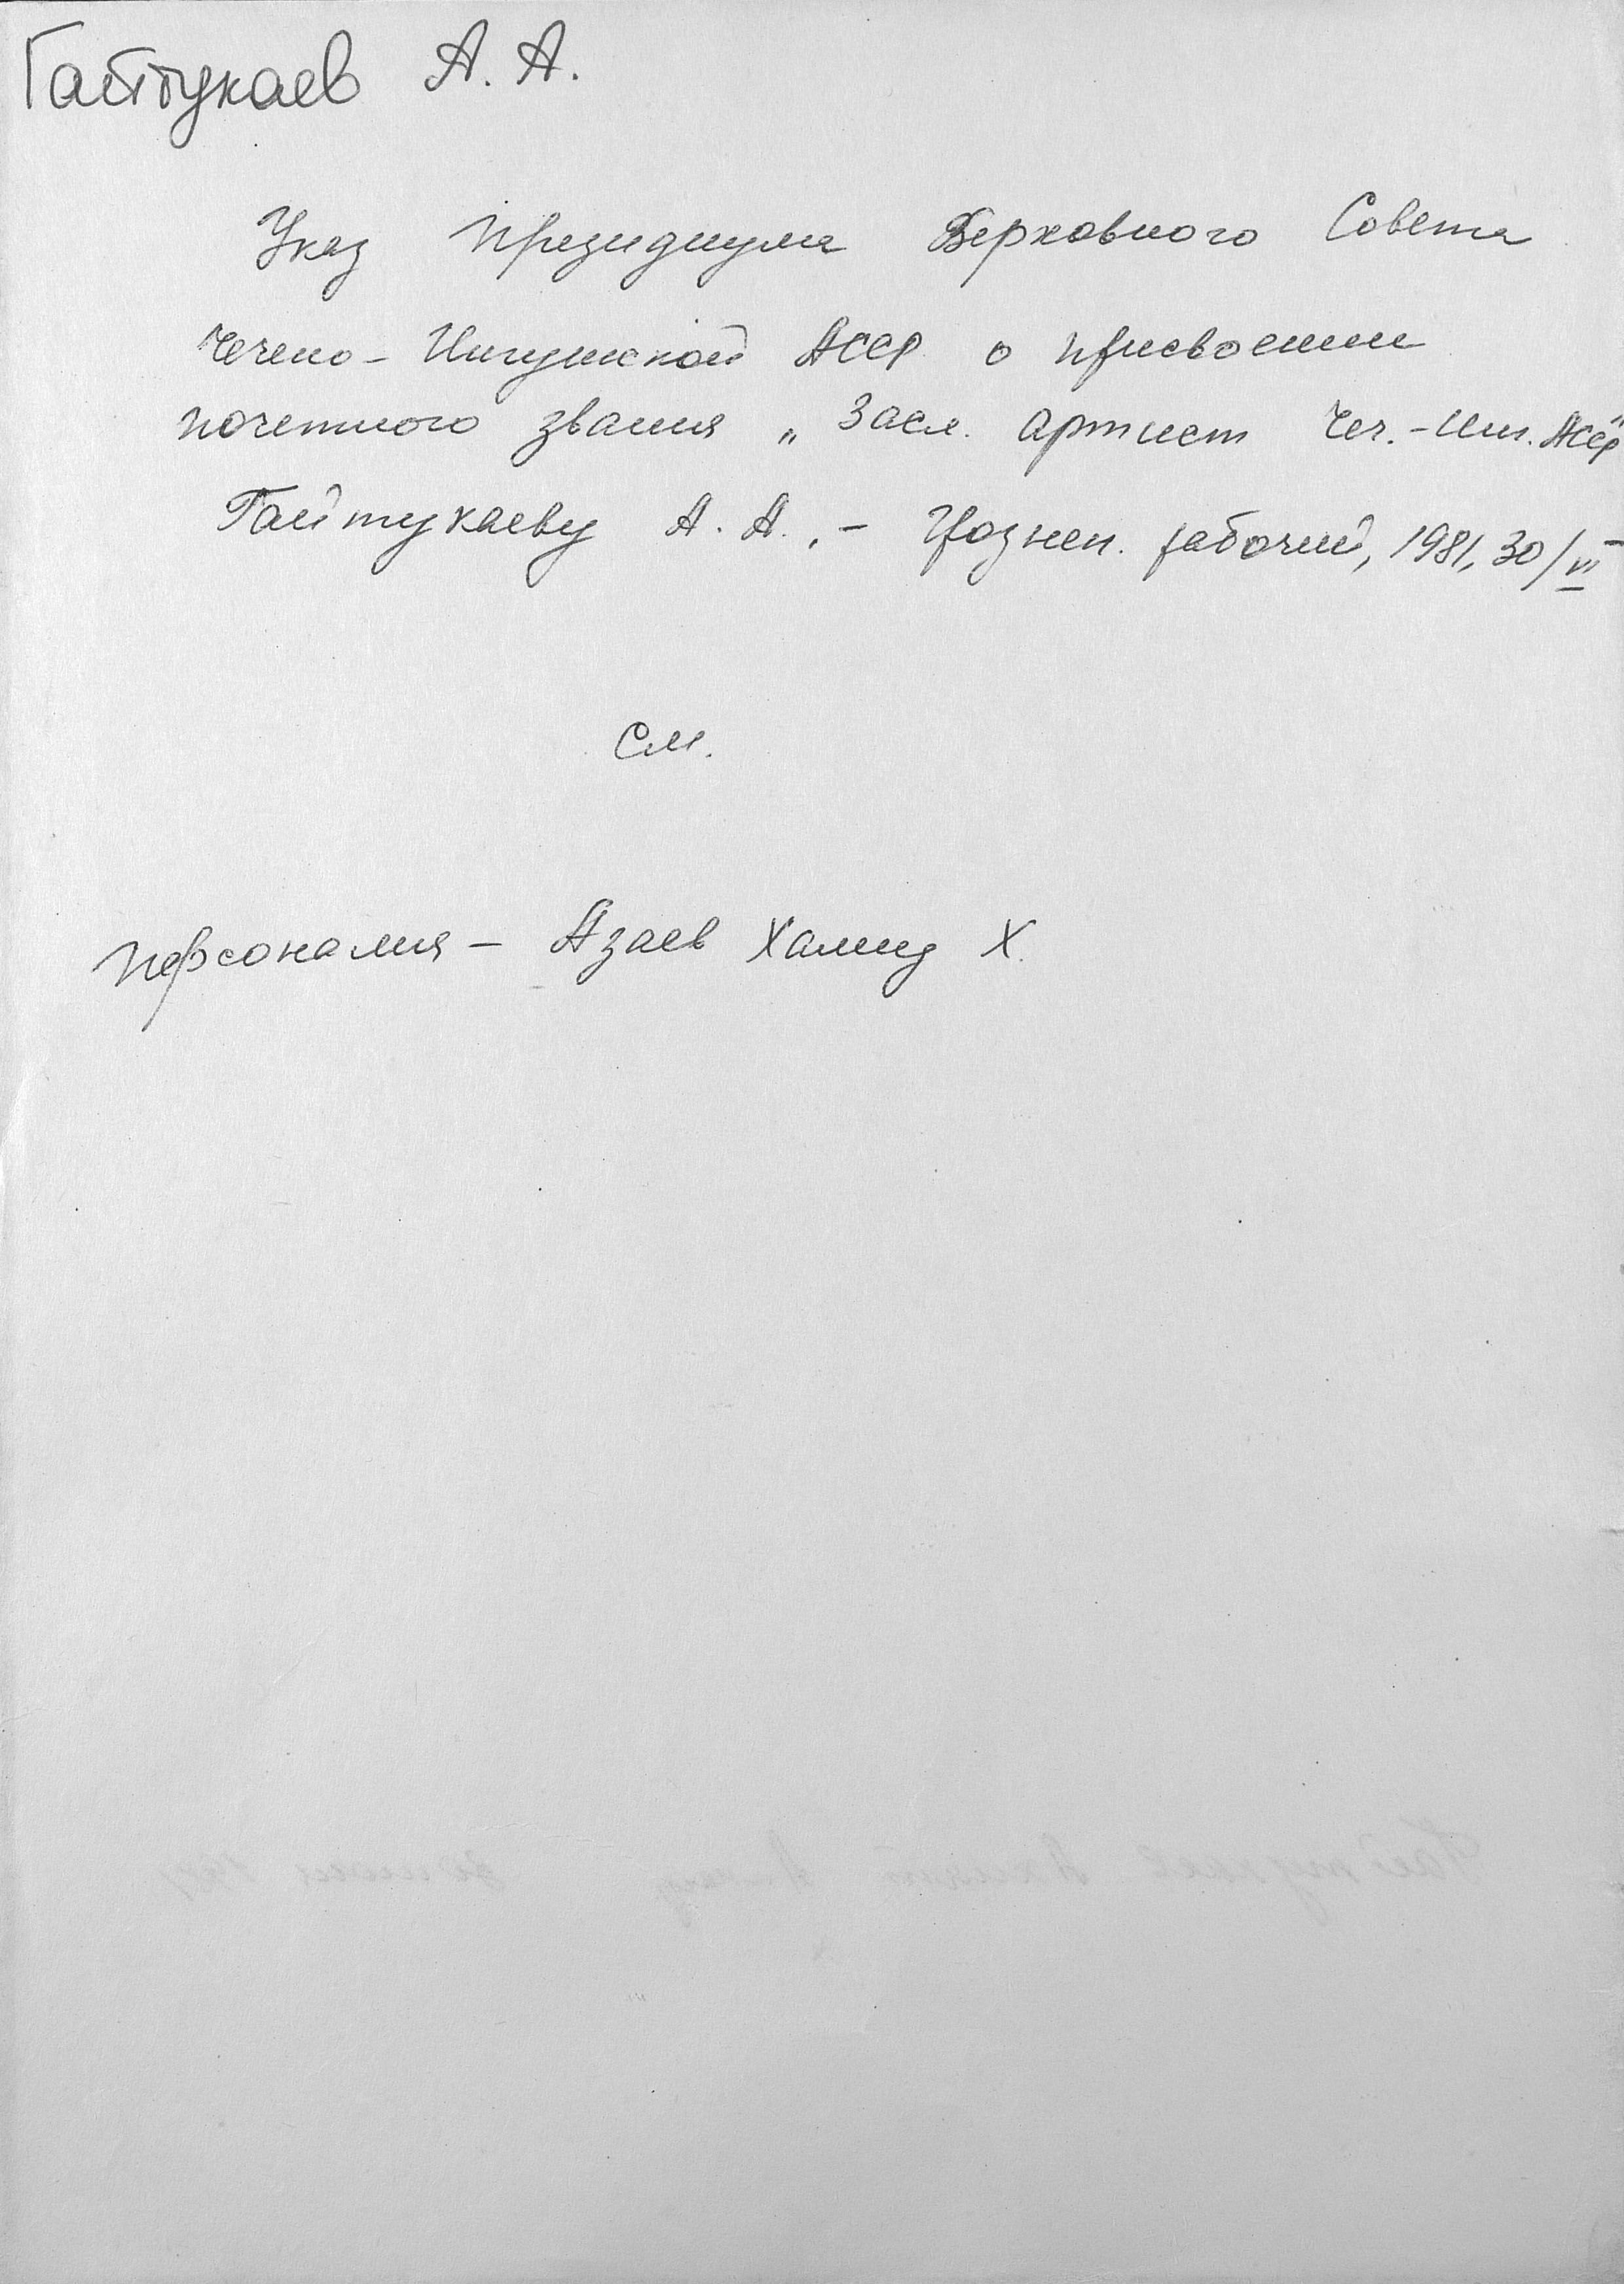 Гайтукаев А. А.
Указ Президиума Верховного Совета
Чечено-Ингушской АССР о присвоении
почетного звания „Засл. артист Чеч.-Инг. АССР"
Гайтукаеву А. А., – Грознен. рабочий, 1981, 30/VI
См.
Персоналия – Азаев Халид Х.